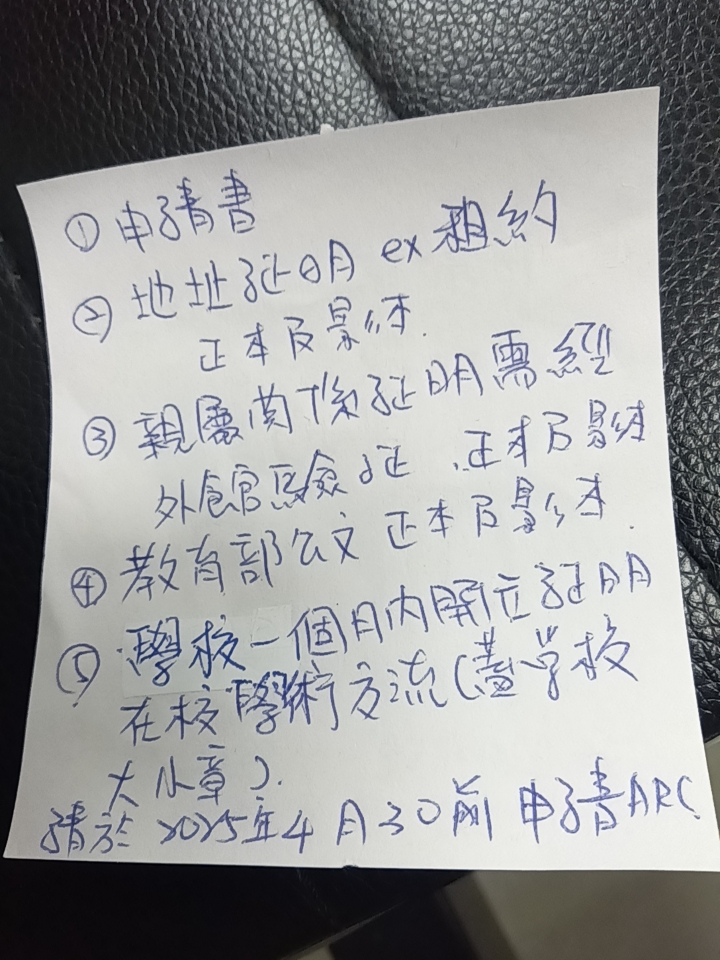 ① 申請書
② 地址証明 ex 租約
正本及影本.
③ 親屬関係証明需經
外館驗証.正本及影本
④ 教育部公文 正本及影本.
⑤ 學校一個月內開立証明
在校學術交流(蓋学校
大小章).
請於 2025年4月30前 申請ARC.